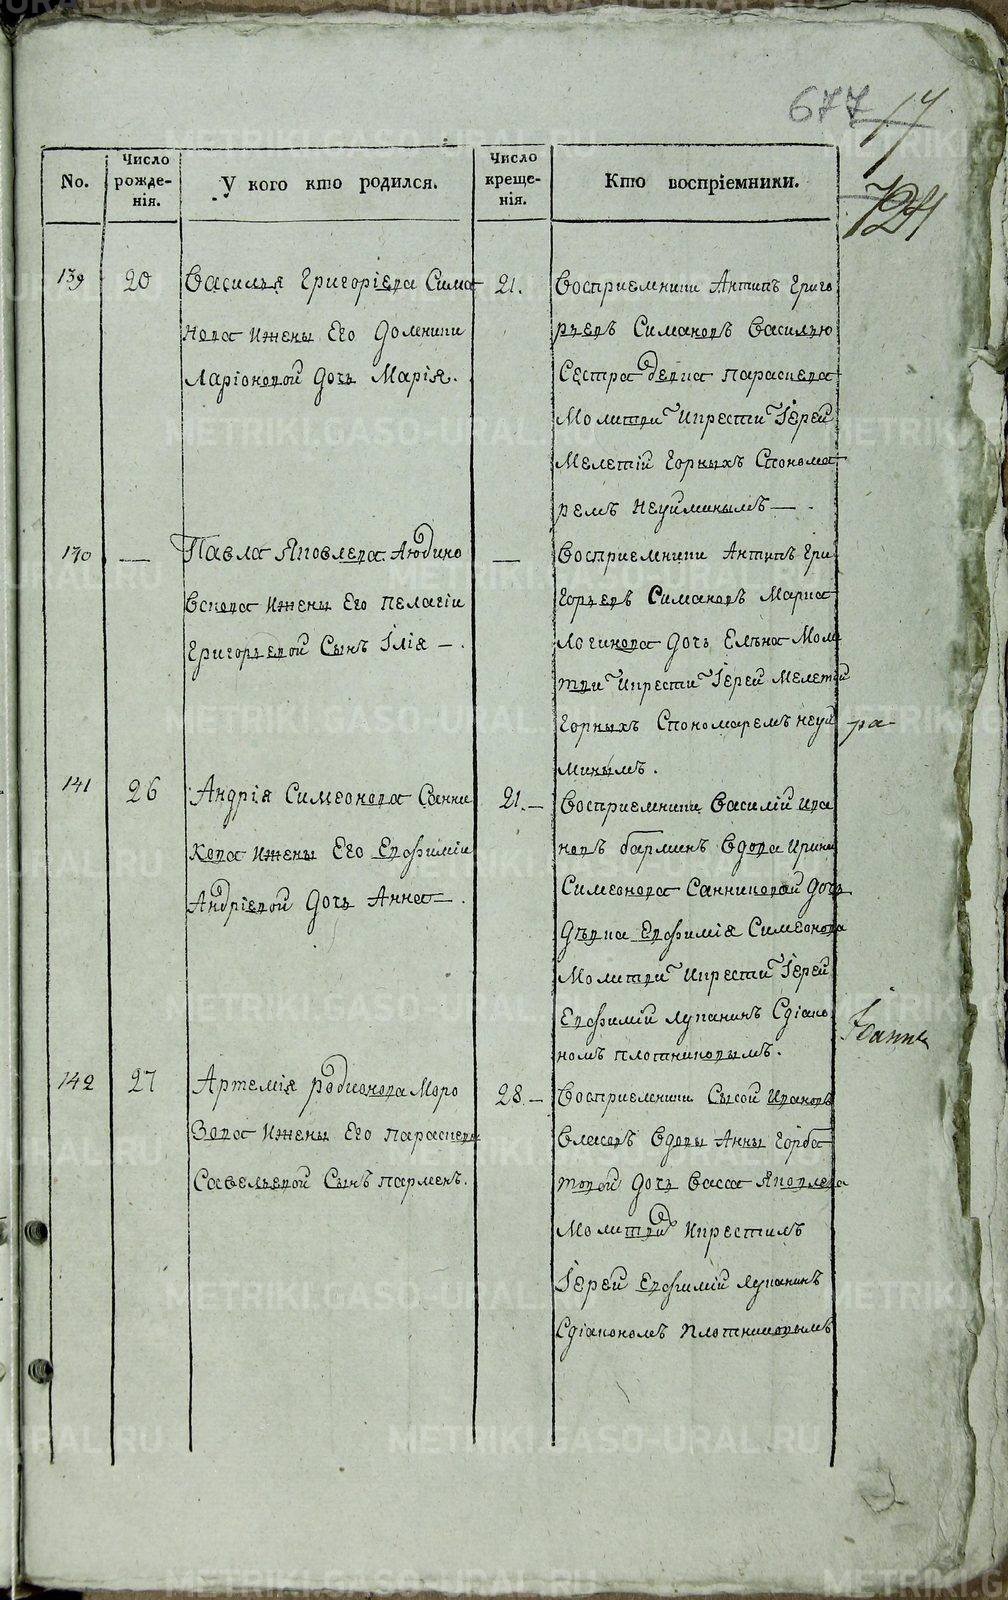 677 17
724
No.
Число рожденія.
У кого кто родился.
Число крещенія.
Кто воспріемники.
139
20
Василья Григоріева Сима
нова ижены Его Домники
Ларіоновой дочь Марія.
21.
Восприемники Антипъ Григо
рьевъ Симановъ Василью
Сестра девка параскева
Молитви икрести Іерей
Мелетій Горныхъ Спонома
ремъ Неуйминымъ —
140
—
Павла Яковлева Людино
вскова ижены Его пелагіи
Григорьевой Сынъ Ілія —.
—
Восприемники Антипъ Гри
Горьевъ Симановъ Марка
Логинова дочь Елѣна Моли
тви икрести Іерей Мелетій
Горныхъ Спономаремъ неуй
минымъ.
ра
141
26
Андрія Симеонова Санни
кова ижены Его Евфиміи
Андріевой дочь Анна —.
21. —
Восприемники Василій ива
новъ барминъ вдова ирина
Симеонова Санниковой дочь
дѣвка Евфимія Симеонова
Молитви икрести Іерей
Евфимій лупанинъ Сдіако
номъ плотниковымъ.
Іоанна
142
27
Артемія родионова Моро
зова ижены Его параскевы
Савельевой Сынъ парменъ.
28. —
Восприемники Сысой ивановъ
власовъ вдовы Анны Горба
товой дочь васса Яковлева
Молитвой икрестилъ
Іерей Евфимій лупанинъ
Сдіакономъ плотниковымъ
METRIKI.GASO-URAL.RU